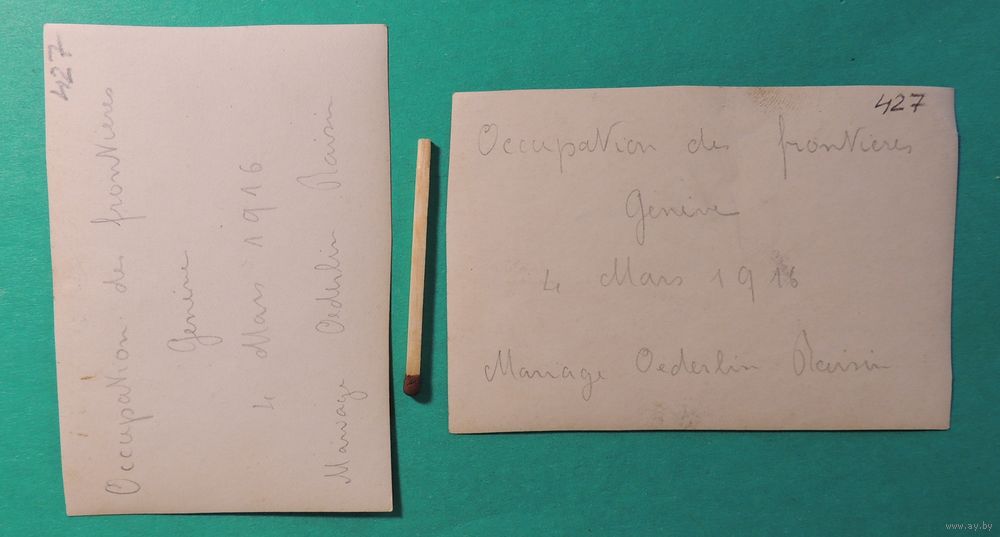 427
Occupation des frontières
Genève
4 Mars 1916
Mariage Oederlin Raisin
427
Occupation des frontières
Genève
4 Mars 1916
Mariage Oederlin Raisin
www.ay.by